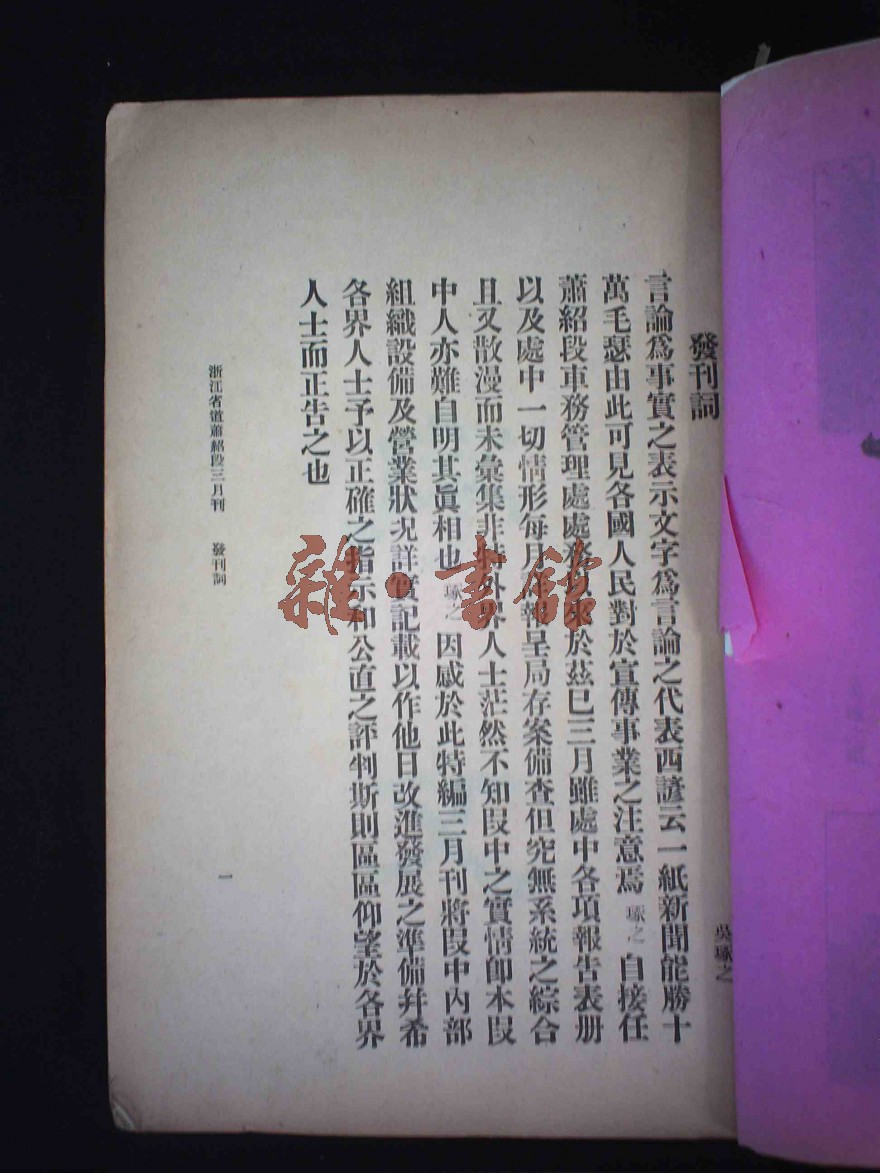 發刊詞
吳琢之
言論爲事實之表示文字爲言論之代表西諺云一紙新聞能勝十
萬毛瑟由此可見各國人民對於宣傳事業之注意焉琢之自接任
蕭紹段車務管理處處務以來於茲已三月雖處中各項報告表册
以及處中一切情形每月報呈局存案備查但究無系統之綜合
且又散漫而未彙集非特外界人士茫然不知段中之實情卽本段
中人亦難自明其眞相也琢之因感於此特編三月刊將段中內部
組織設備及營業狀況詳實記載以作他日改進發展之準備幷希
各界人士予以正確之指示和公直之評判斯則區區仰望於各界
人士而正告之也
浙江省道蕭紹段三月刊 發刊詞
一
雜·書館